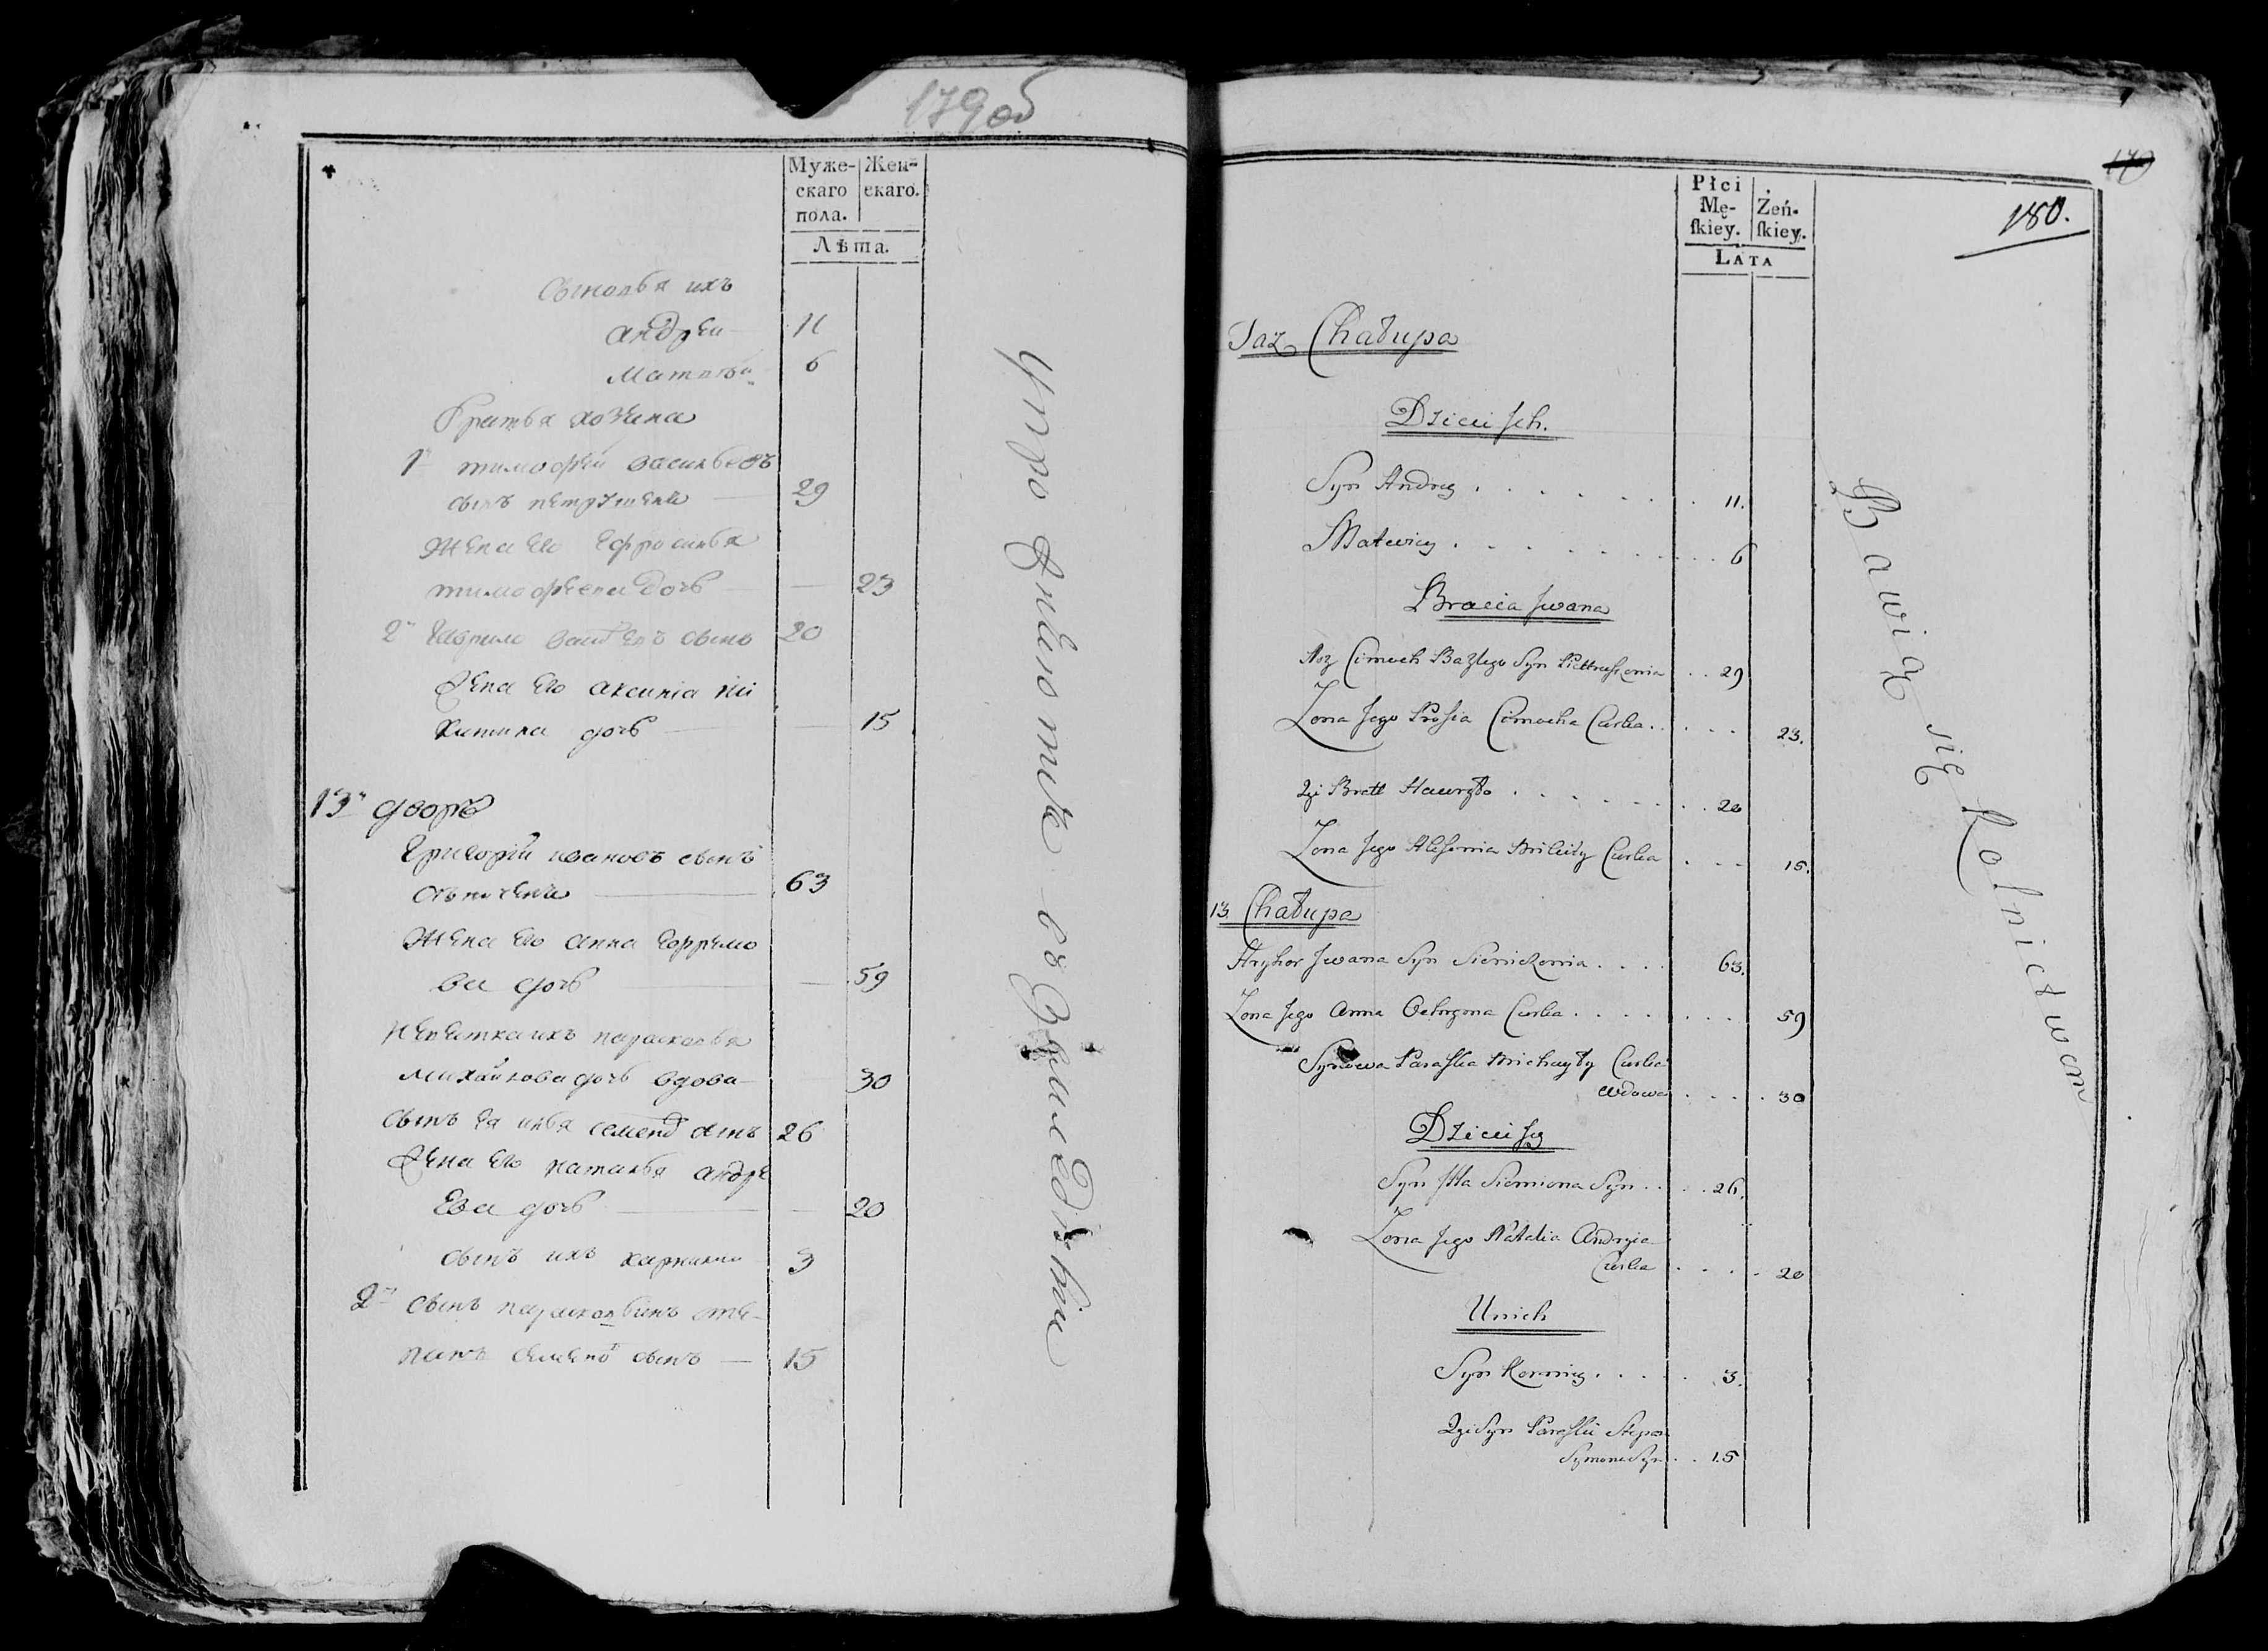 179 об
Муже-
скаго
пола.
Жен-
скаго.
Лѣта.
Сыновья ихъ
Андрей 11
Матвѣй 6
Братья хозяина
1й Тимофѣй Васильевъ
сынъ 29
Жена Его Ефросинья
Тимофеева дочь — 23
2й Гаврило сынъ 20
Жена Его Аксинia Ни
китина дочь — 15
13й дворъ
Григорiй Ивановъ сынъ
63
Жена Его Анна Ефремо
ва дочь — 59
Невѣстка ихъ Парасковья
Михайлова дочь вдова — 30
Сынъ Ея Илья Семенов сынъ 26
Жена Его Наталья Андре
Ева дочь — 20
сынъ ихъ 3
2й сынъ Парасковьинъ Сте-
панъ Семенов сынъ — 15
въ Земледѣлiи
170
180.
Płci
Mę-
ſkiey.
Żeń-
ſkiey.
LATA
Taż Chałupa
Dzieci Ich.
Syn Andrey . . . . . . . 11.
Matwiey . . . . . . . . 6
Bracia Jwana
Cimoch Bazylego Syn . . 29
Żona Jego Prosia Cimocha Curka . . . . . 23.
2gi Bratt Hawryło . . . . . . . . 20
Żona Jego Mikity Curka . . . 15.
13. Chałupa
Hryhor Jwana Syn . . . . 63.
Żona Jego Anna Curka . . . . . . . . 59
Synowa Paraſka Michayły Curka
wdowa . . . . 30
Dzieci Jey
Syn Jlla Siemiona Syn . . . . 26.
Żona Jego Natalia Andreja
Curka . . . . 20
U nich
Syn Korniey . . . . . 3.
2gi Syn Paraſki Stepan
Symona Syn . . 15
Bawią się Rolnictwem